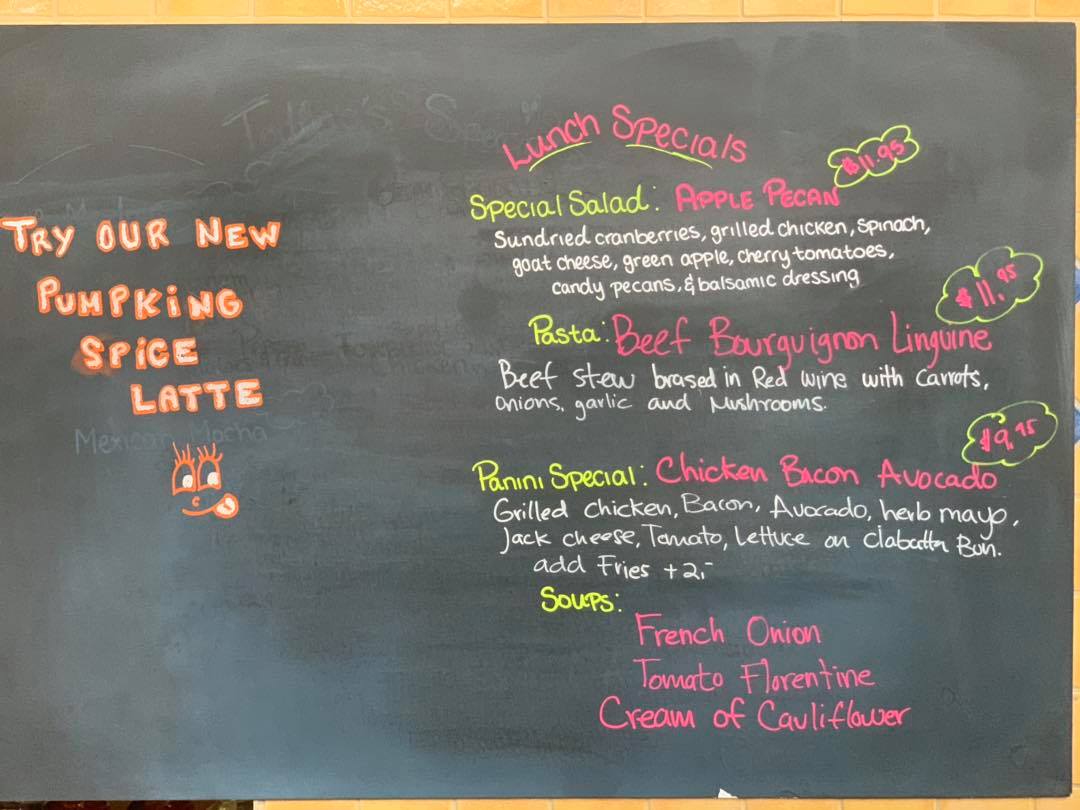 TRY OUR NEW
PUMPKING
SPICE
LATTE
Mexican Mocha
Lunch Specials
$11.95
Special Salad: APPLE PECAN
Sundried cranberries, grilled chicken, spinach,
goat cheese, green apple, cherry tomatoes,
candy pecans, & balsamic dressing
$11.95
Pasta: Beef Bourguignon Linguine
Beef stew brased in Red wine with Carrots,
Onions, garlic and Mushrooms.
$9.95
Panini Special: Chicken Bacon Avocado
Grilled chicken, Bacon, Avocado, herb mayo,
Jack cheese, Tomato, Lettuce on Ciabatta Bun.
add Fries +2,-
Soups:
French Onion
Tomato Florentine
Cream of Cauliflower